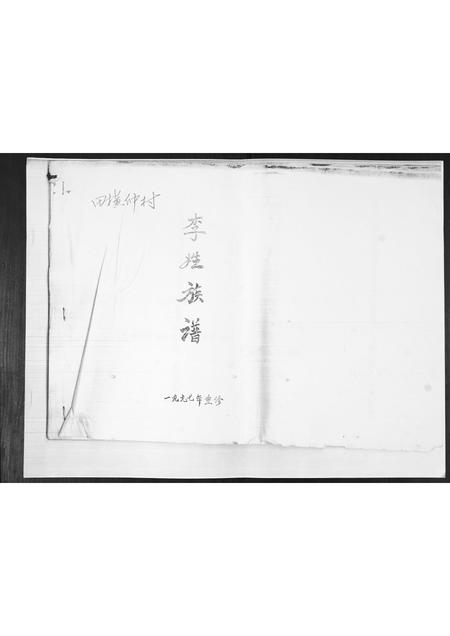 田横仲村
李姓族谱
一九九七年重修